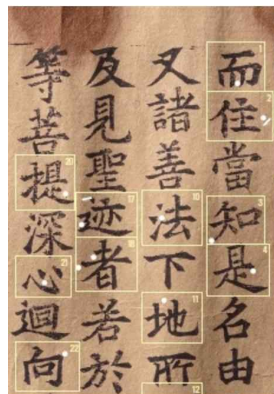 而住當知是名由
又諸善法下地所
及見聖迹者若於
等菩提深心迴向